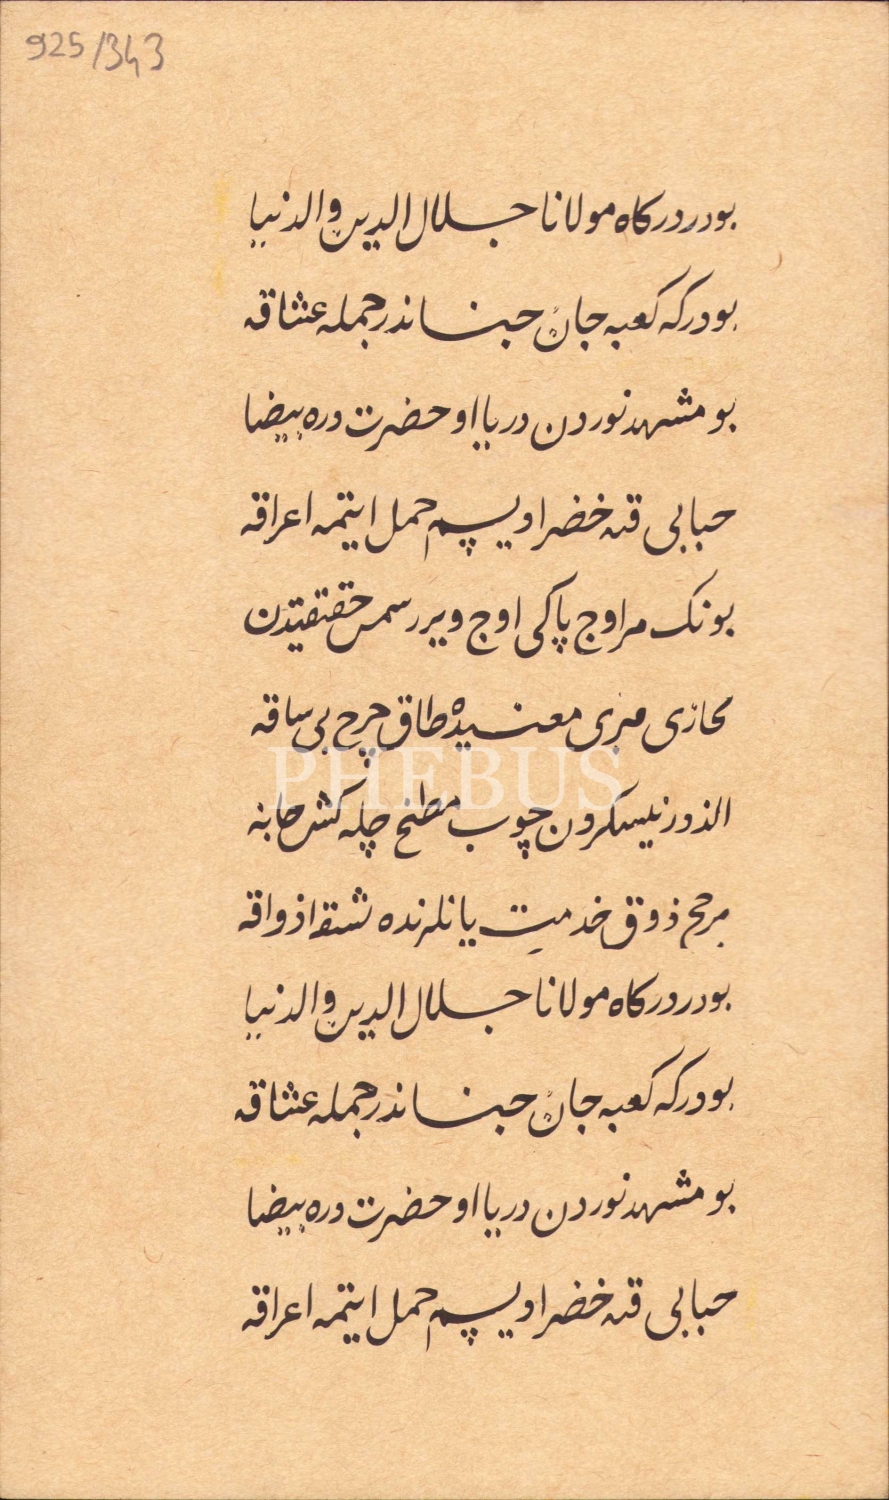 925/343
بودر درکاه مولانا جلال الدین والدنیا
بودرکه کعبه جان جناندر جمله عشاقه
بو مشهد نوردن دریا او حضرت دره بیضا
حبابی قبه خضراویسم حمل ایتمه اعراقه
بونک مراوج پاکی اوج ویرر سمس حقتقیدن
محازی مبری معنیده طاق چرخ بی ساقه
الذور نیسکرون چوب مطبخ چله کش حابه
مرجح ذوق خدمت یانلرنده شقا ذواقه
بودر درکاه مولانا جلال الدین والدنیا
بودرکه کعبه جان جناندر جمله عشاقه
بو مشهد نوردن دریا او حضرت دره بیضا
حبابی قبه خضراویسم حمل ایتمه اعراقه
PHEBUS